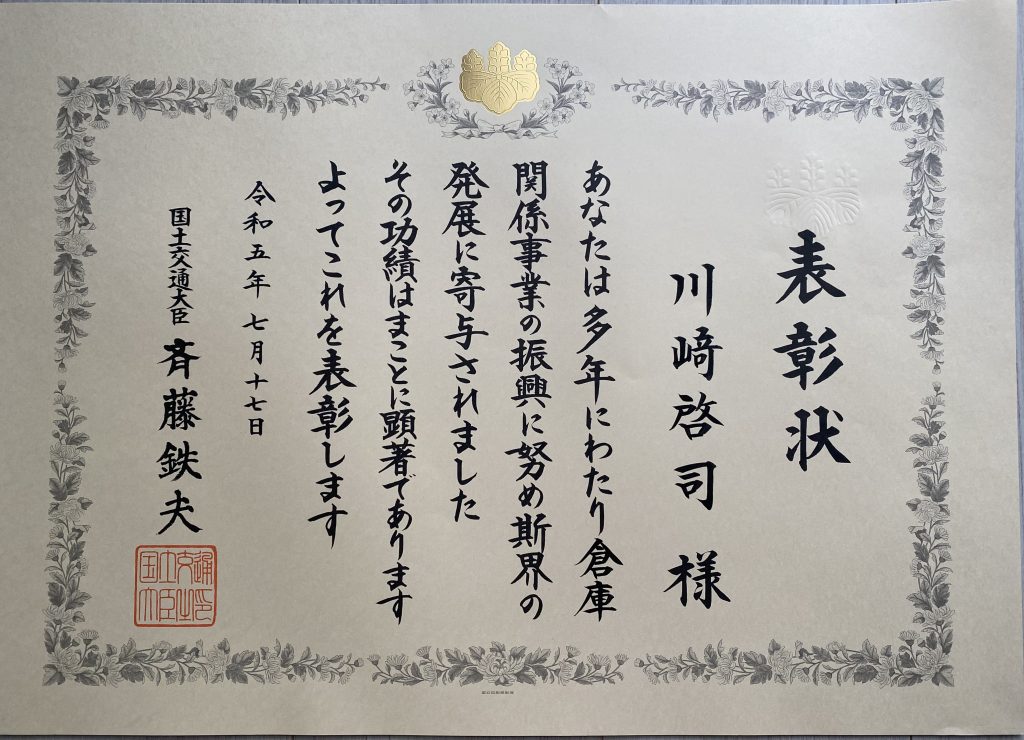 表彰状
川﨑啓司 様
あなたは多年にわたり倉庫
関係事業の振興に努め斯界の
発展に寄与されました
その功績はまことに顕著であります
よってこれを表彰します
令和五年七月十七日
国土交通大臣 斉藤鉄夫
国土交通大臣之印